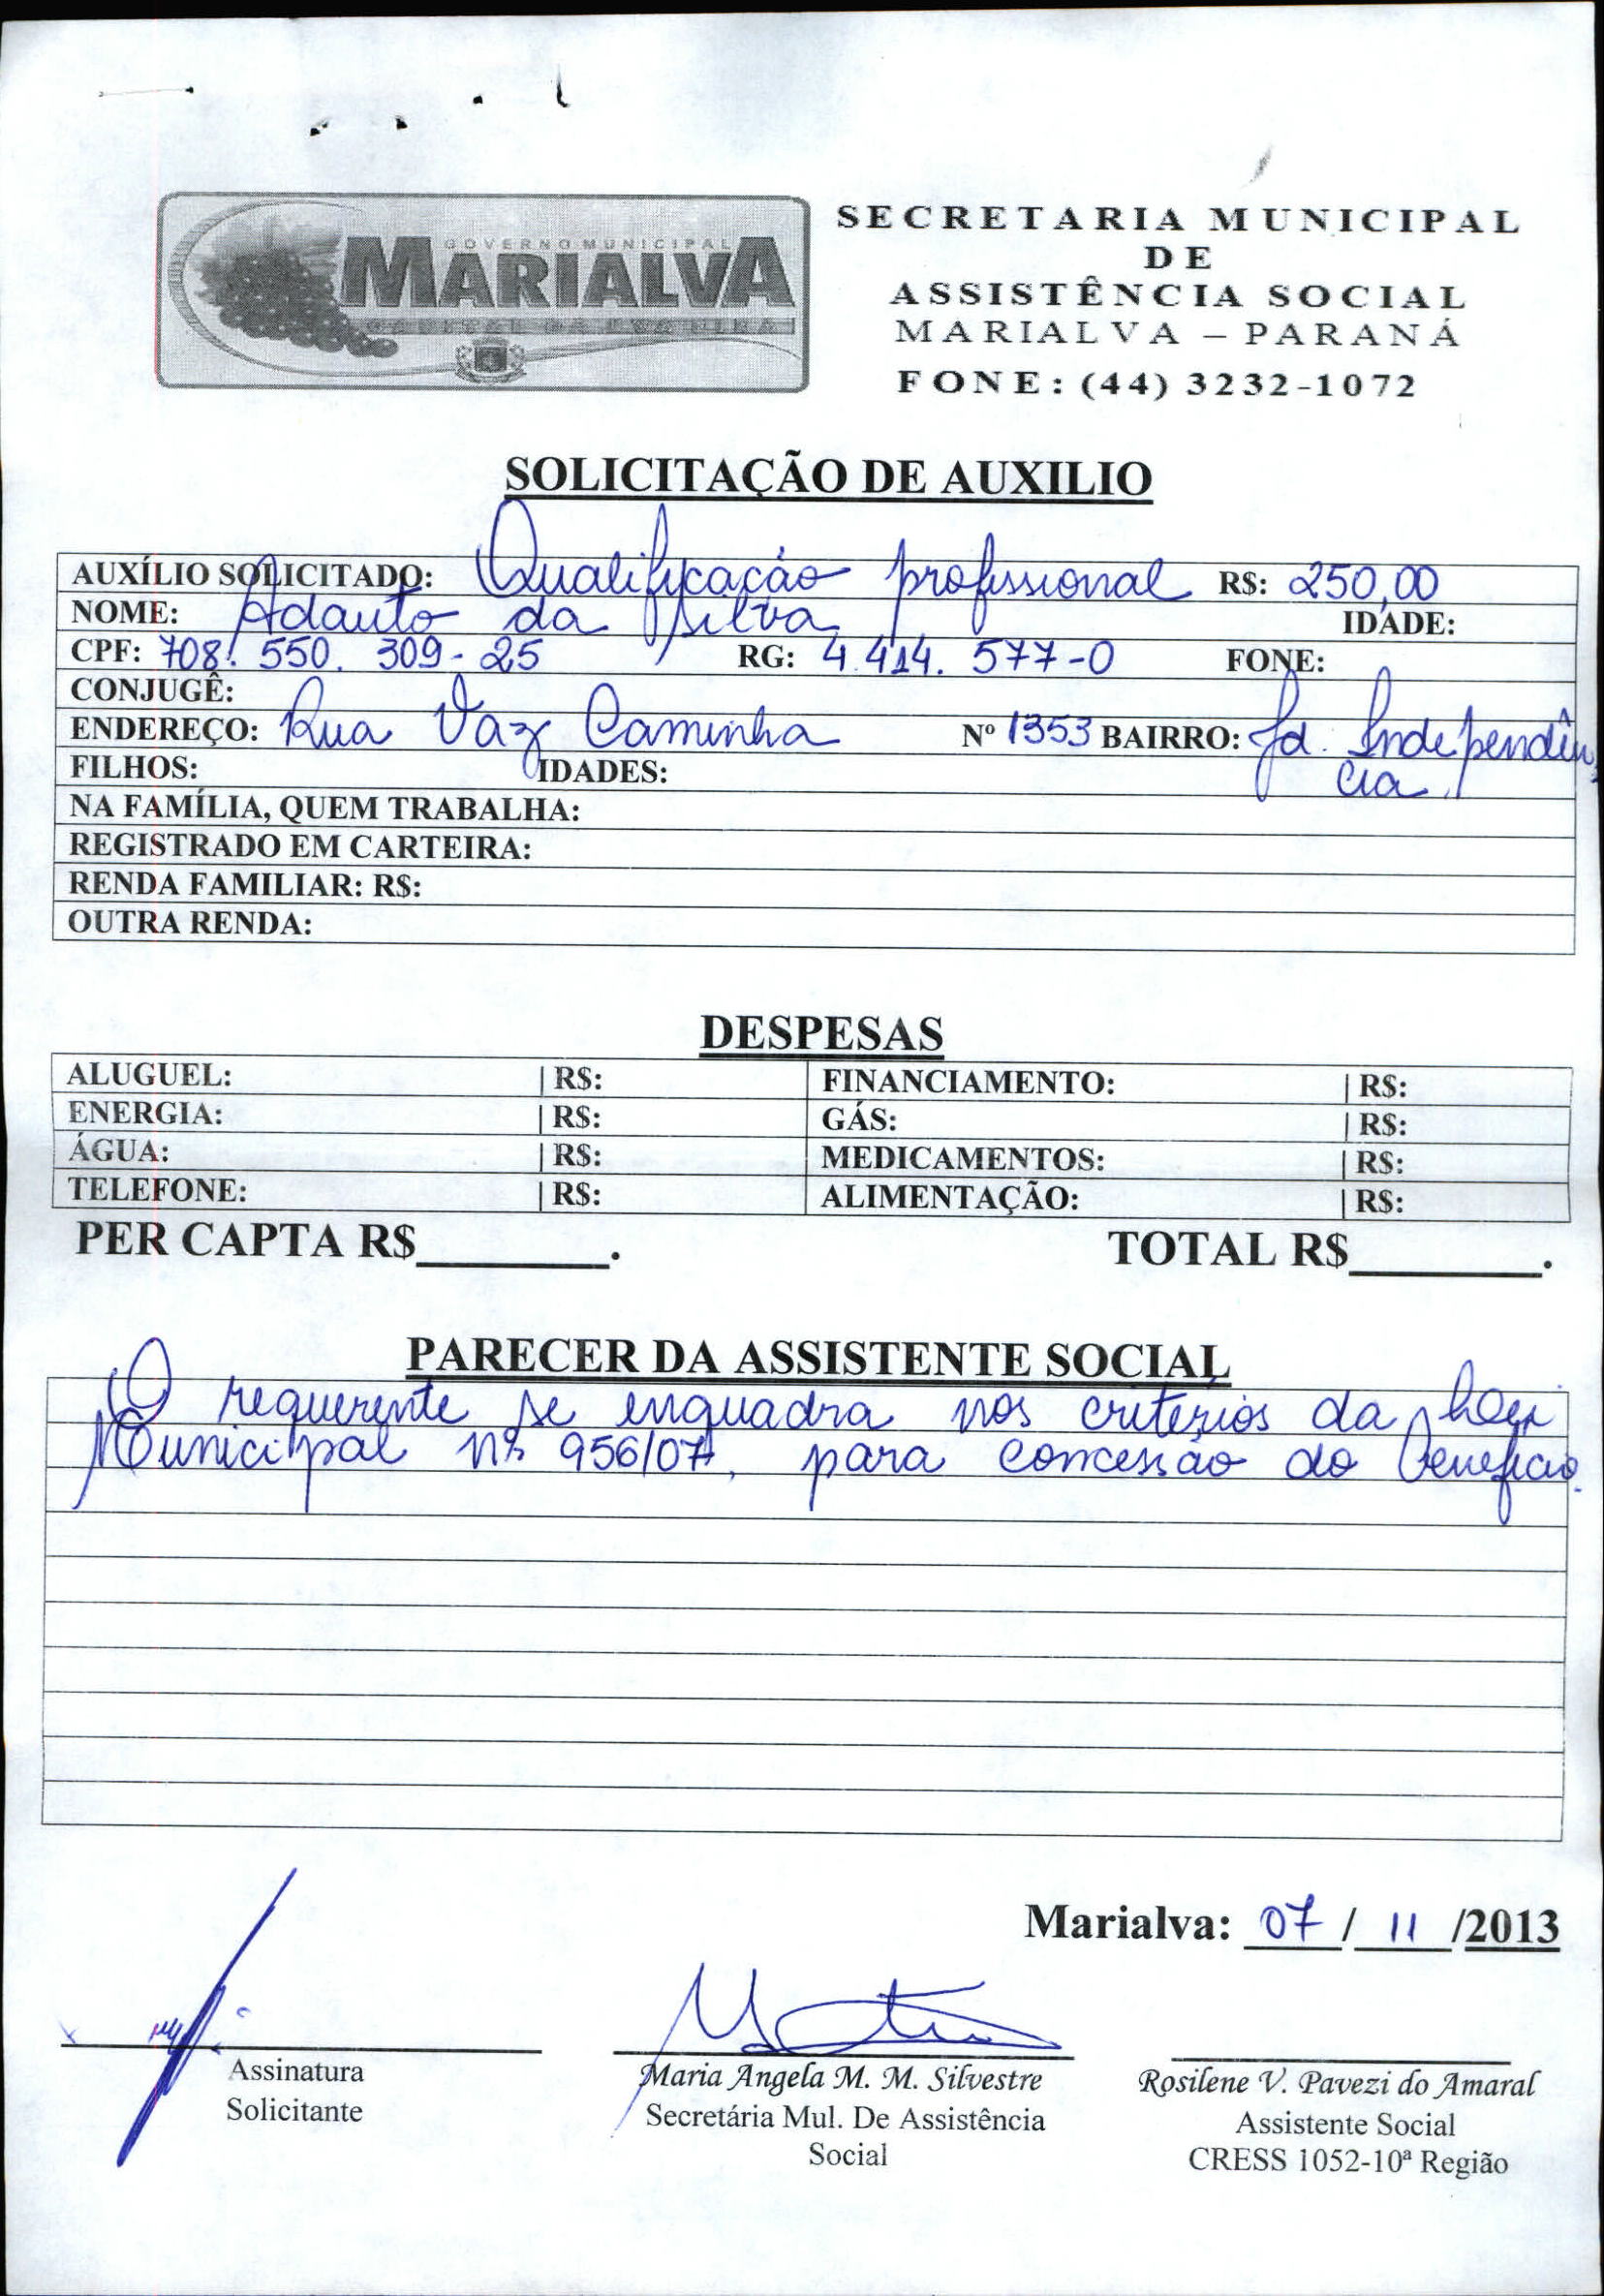 GOVERNO MUNICIPAL
MARIALVA
SECRETARIA MUNICIPAL
DE
ASSISTÊNCIA SOCIAL
MARIALVA – PARANÁ
FONE: (44) 3232-1072
SOLICITAÇÃO DE AUXILIO
AUXÍLIO SOLICITADO: Qualificação profissional R$: 250,00
NOME: Adauto da Silva IDADE:
CPF: 708. 550. 309-25 RG: 4.414. 577-0 FONE:
CONJUGÊ:
ENDEREÇO: Rua Vaz Caminha Nº 1353 BAIRRO: Jd. Independên
cia
FILHOS: IDADES:
NA FAMÍLIA, QUEM TRABALHA:
REGISTRADO EM CARTEIRA:
RENDA FAMILIAR: R$:
OUTRA RENDA:
DESPESAS
ALUGUEL: | R$: FINANCIAMENTO: | R$:
ENERGIA: | R$: GÁS: | R$:
ÁGUA: | R$: MEDICAMENTOS: | R$:
TELEFONE: | R$: ALIMENTAÇÃO: | R$:
PER CAPTA R$________. TOTAL R$________.
PARECER DA ASSISTENTE SOCIAL
O requerente se enquadra nos critérios da Lei
Municipal nº 956/07, para concessão do benefício.
Marialva: 07 / 11 /2013
Assinatura
Solicitante
Maria Angela M. M. Silvestre
Secretária Mul. De Assistência
Social
Rosilene V. Pavezi do Amaral
Assistente Social
CRESS 1052-10ª Região